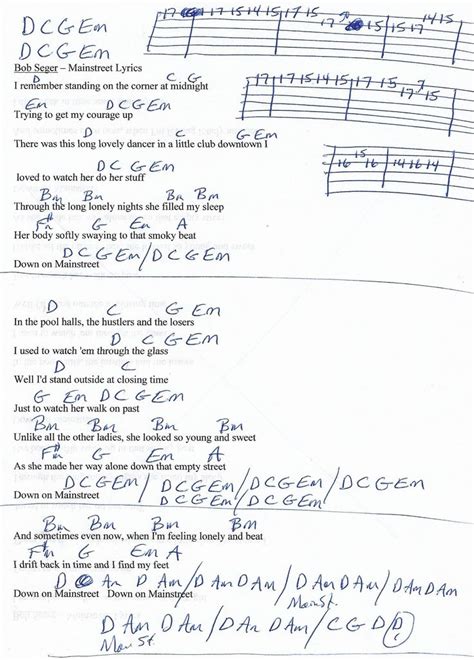 D C G Em
17 17 15 14 15 17 15
17 15 15 17 14 15
D C G Em
Bob Seger – Mainstreet Lyrics
D C G
I remember standing on the corner at midnight
17 17 15 14 15 17 15 17 15
Em D C G Em
Trying to get my courage up
D C G Em
There was this long lovely dancer in a little club downtown I
15
16 16 14 16 14
D C G Em
loved to watch her do her stuff
Bm Bm Bm Bm
Through the long lonely nights she filled my sleep
F#m G Em A
Her body softly swaying to that smoky beat
D C G Em / D C G Em
Down on Mainstreet
D C G Em
In the pool halls, the hustlers and the losers
D C G Em
I used to watch 'em through the glass
D C
Well I'd stand outside at closing time
G Em D C G Em
Just to watch her walk on past
Bm Bm Bm Bm
Unlike all the other ladies, she looked so young and sweet
F#m G Em A
As she made her way alone down that empty street
D C G Em / D C G Em / D C G Em / D C G Em
Down on Mainstreet D C G Em / D C G Em
Bm Bm Bm Bm
And sometimes even now, when I'm feeling lonely and beat
F#m G Em A
I drift back in time and I find my feet
D Am D Am / D Am D Am / D Am D Am / D Am D Am
Down on Mainstreet Down on Mainstreet Main St.
D Am D Am / D Am D Am / C G D D
Main St.